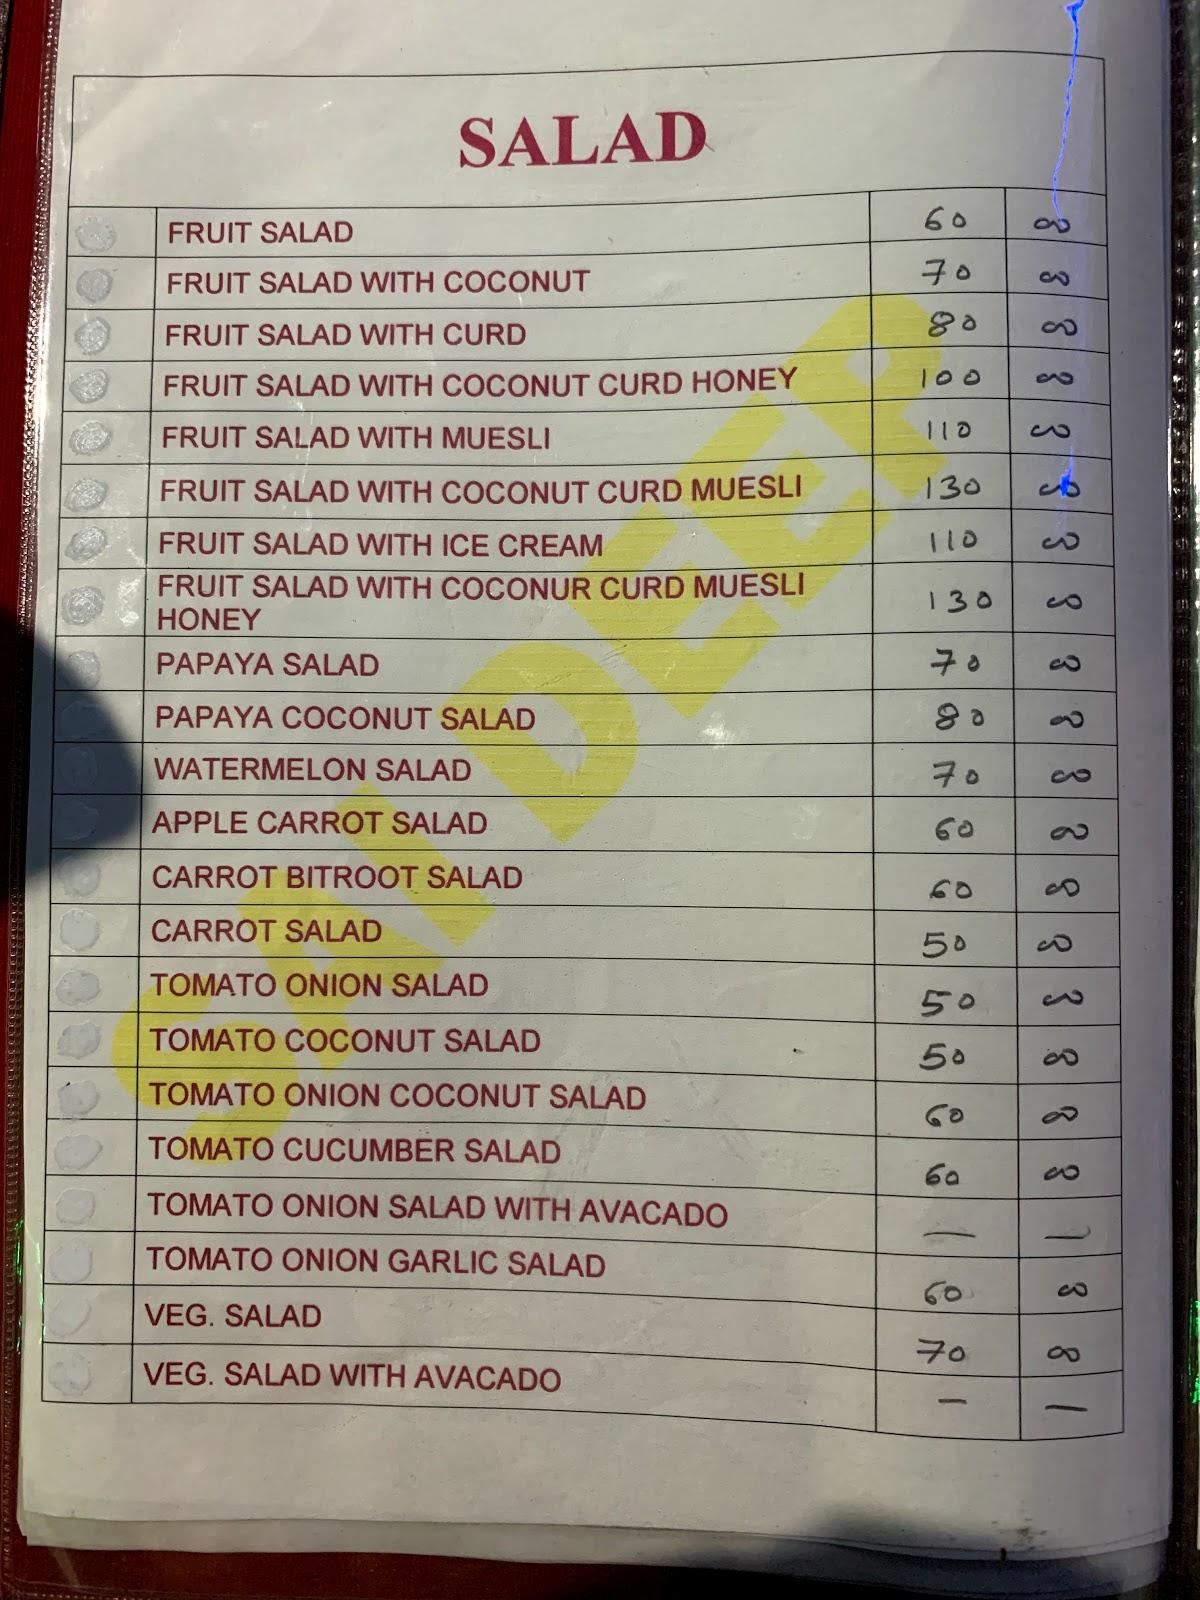 SALAD
FRUIT SALAD 60 00
FRUIT SALAD WITH COCONUT 70 00
FRUIT SALAD WITH CURD 80 00
FRUIT SALAD WITH COCONUT CURD HONEY 100 00
FRUIT SALAD WITH MUESLI 110 00
FRUIT SALAD WITH COCONUT CURD MUESLI 130 00
FRUIT SALAD WITH ICE CREAM 110 00
FRUIT SALAD WITH COCONUR CURD MUESLI
HONEY 130 00
PAPAYA SALAD 70 00
PAPAYA COCONUT SALAD 80 00
WATERMELON SALAD 70 00
APPLE CARROT SALAD 60 00
CARROT BITROOT SALAD 60 00
CARROT SALAD 50 00
TOMATO ONION SALAD 50 00
TOMATO COCONUT SALAD 50 00
TOMATO ONION COCONUT SALAD 60 00
TOMATO CUCUMBER SALAD 60 00
TOMATO ONION SALAD WITH AVACADO — —
TOMATO ONION GARLIC SALAD 60 00
VEG. SALAD 70 00
VEG. SALAD WITH AVACADO — —
SAI DEEP